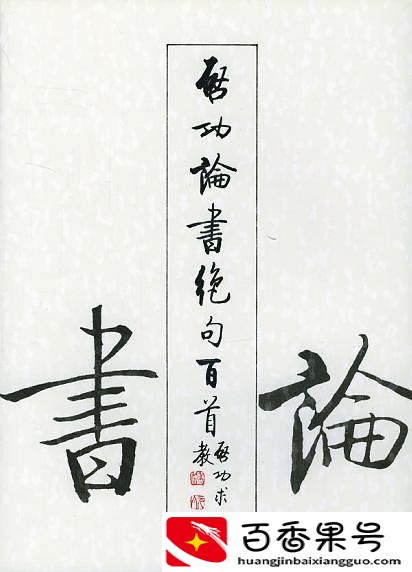 啓功論書絶句百首
啓功求
教
論書
百香果号
huangjinbaixiangguo.com